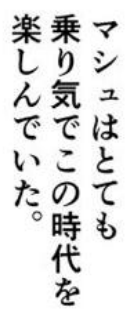 マシュはとても
乗り気でこの時代を
楽しんでいた。